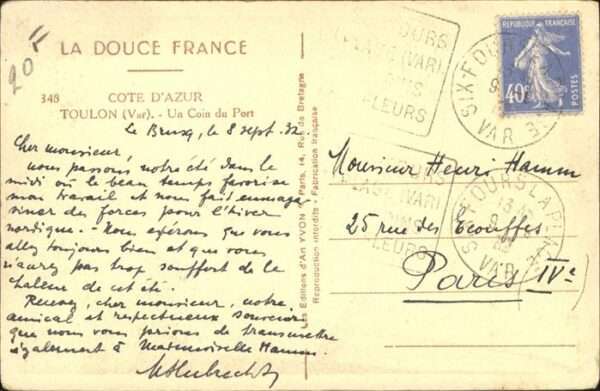 20
LA DOUCE FRANCE
348 COTE D'AZUR
TOULON (Var). - Un Coin du Port
Le Brusq, le 8 sept. 32
Cher monsieur,
nous passons notre été dans le
midi où le beau temps favorise
mon travail et nous fait emmaga-
siner des forces pour l'hiver
nordique. - Nous espérons que vous
allez toujours bien et que vous
n'aurez pas trop souffert de la
chaleur de cet été.
Recevez, cher monsieur, notre
amical et respectueux souvenir
que nous vous prions de transmettre
également à Mademoiselle Hamm.
Les Editions d'Art YVON - Paris, 14, Rue de Bretagne
Reproduction interdite - Fabrication française
REPUBLIQUE FRANÇAISE
40c
POSTES
SIX-FOURS
VAR
FLEURS
Monsieur Henri Hamm
25 rue des Ecouffes
Paris IVe
SIX-FOURS-LA PLAGE
VAR
PLAGE (VAR)
FLEURS